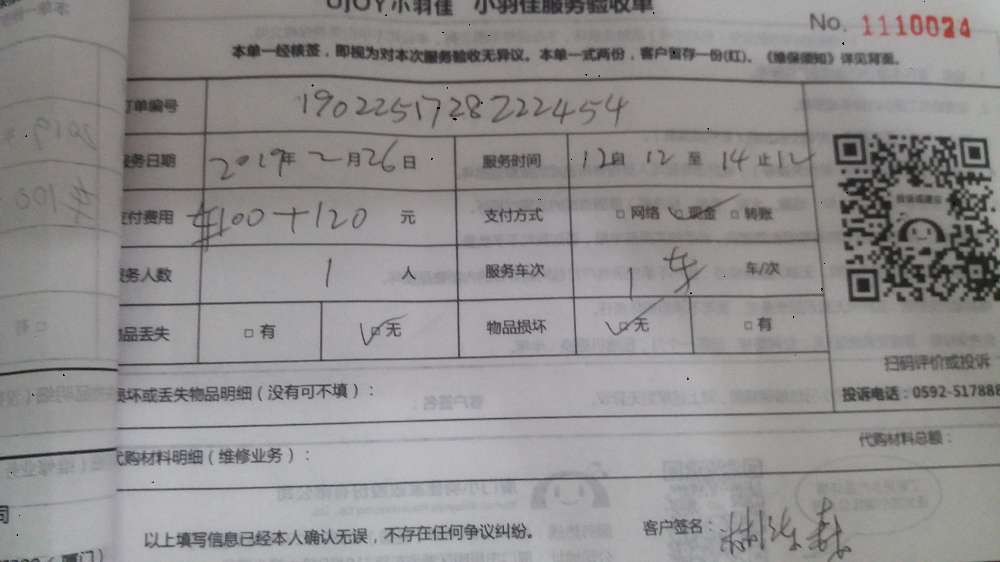 UJOY小羽佳 小羽佳服务验收单
No. 1110024
本单一经核签，即视为对本次服务验收无异议。本单一式两份，客户暂存一份(红)、《维保须知》详见背面。
订单编号 1902251728222454
服务日期 2019年2月26日 服务时间 12自12至14止12
支付费用 车100+120 元 支付方式 □网络 ☑现金 □转账
服务人数 1 人 服务车次 1 车 车/次
物品丢失 □有 ☑无 物品损坏 ☑无 □有
扫码评价或投诉
损坏或丢失物品明细（没有可不填）：
投诉电话：0592-517888
代购材料总额：
代购材料明细（维修业务）：
以上填写信息已经本人确认无误，不存在任何争议纠纷。
客户签名：